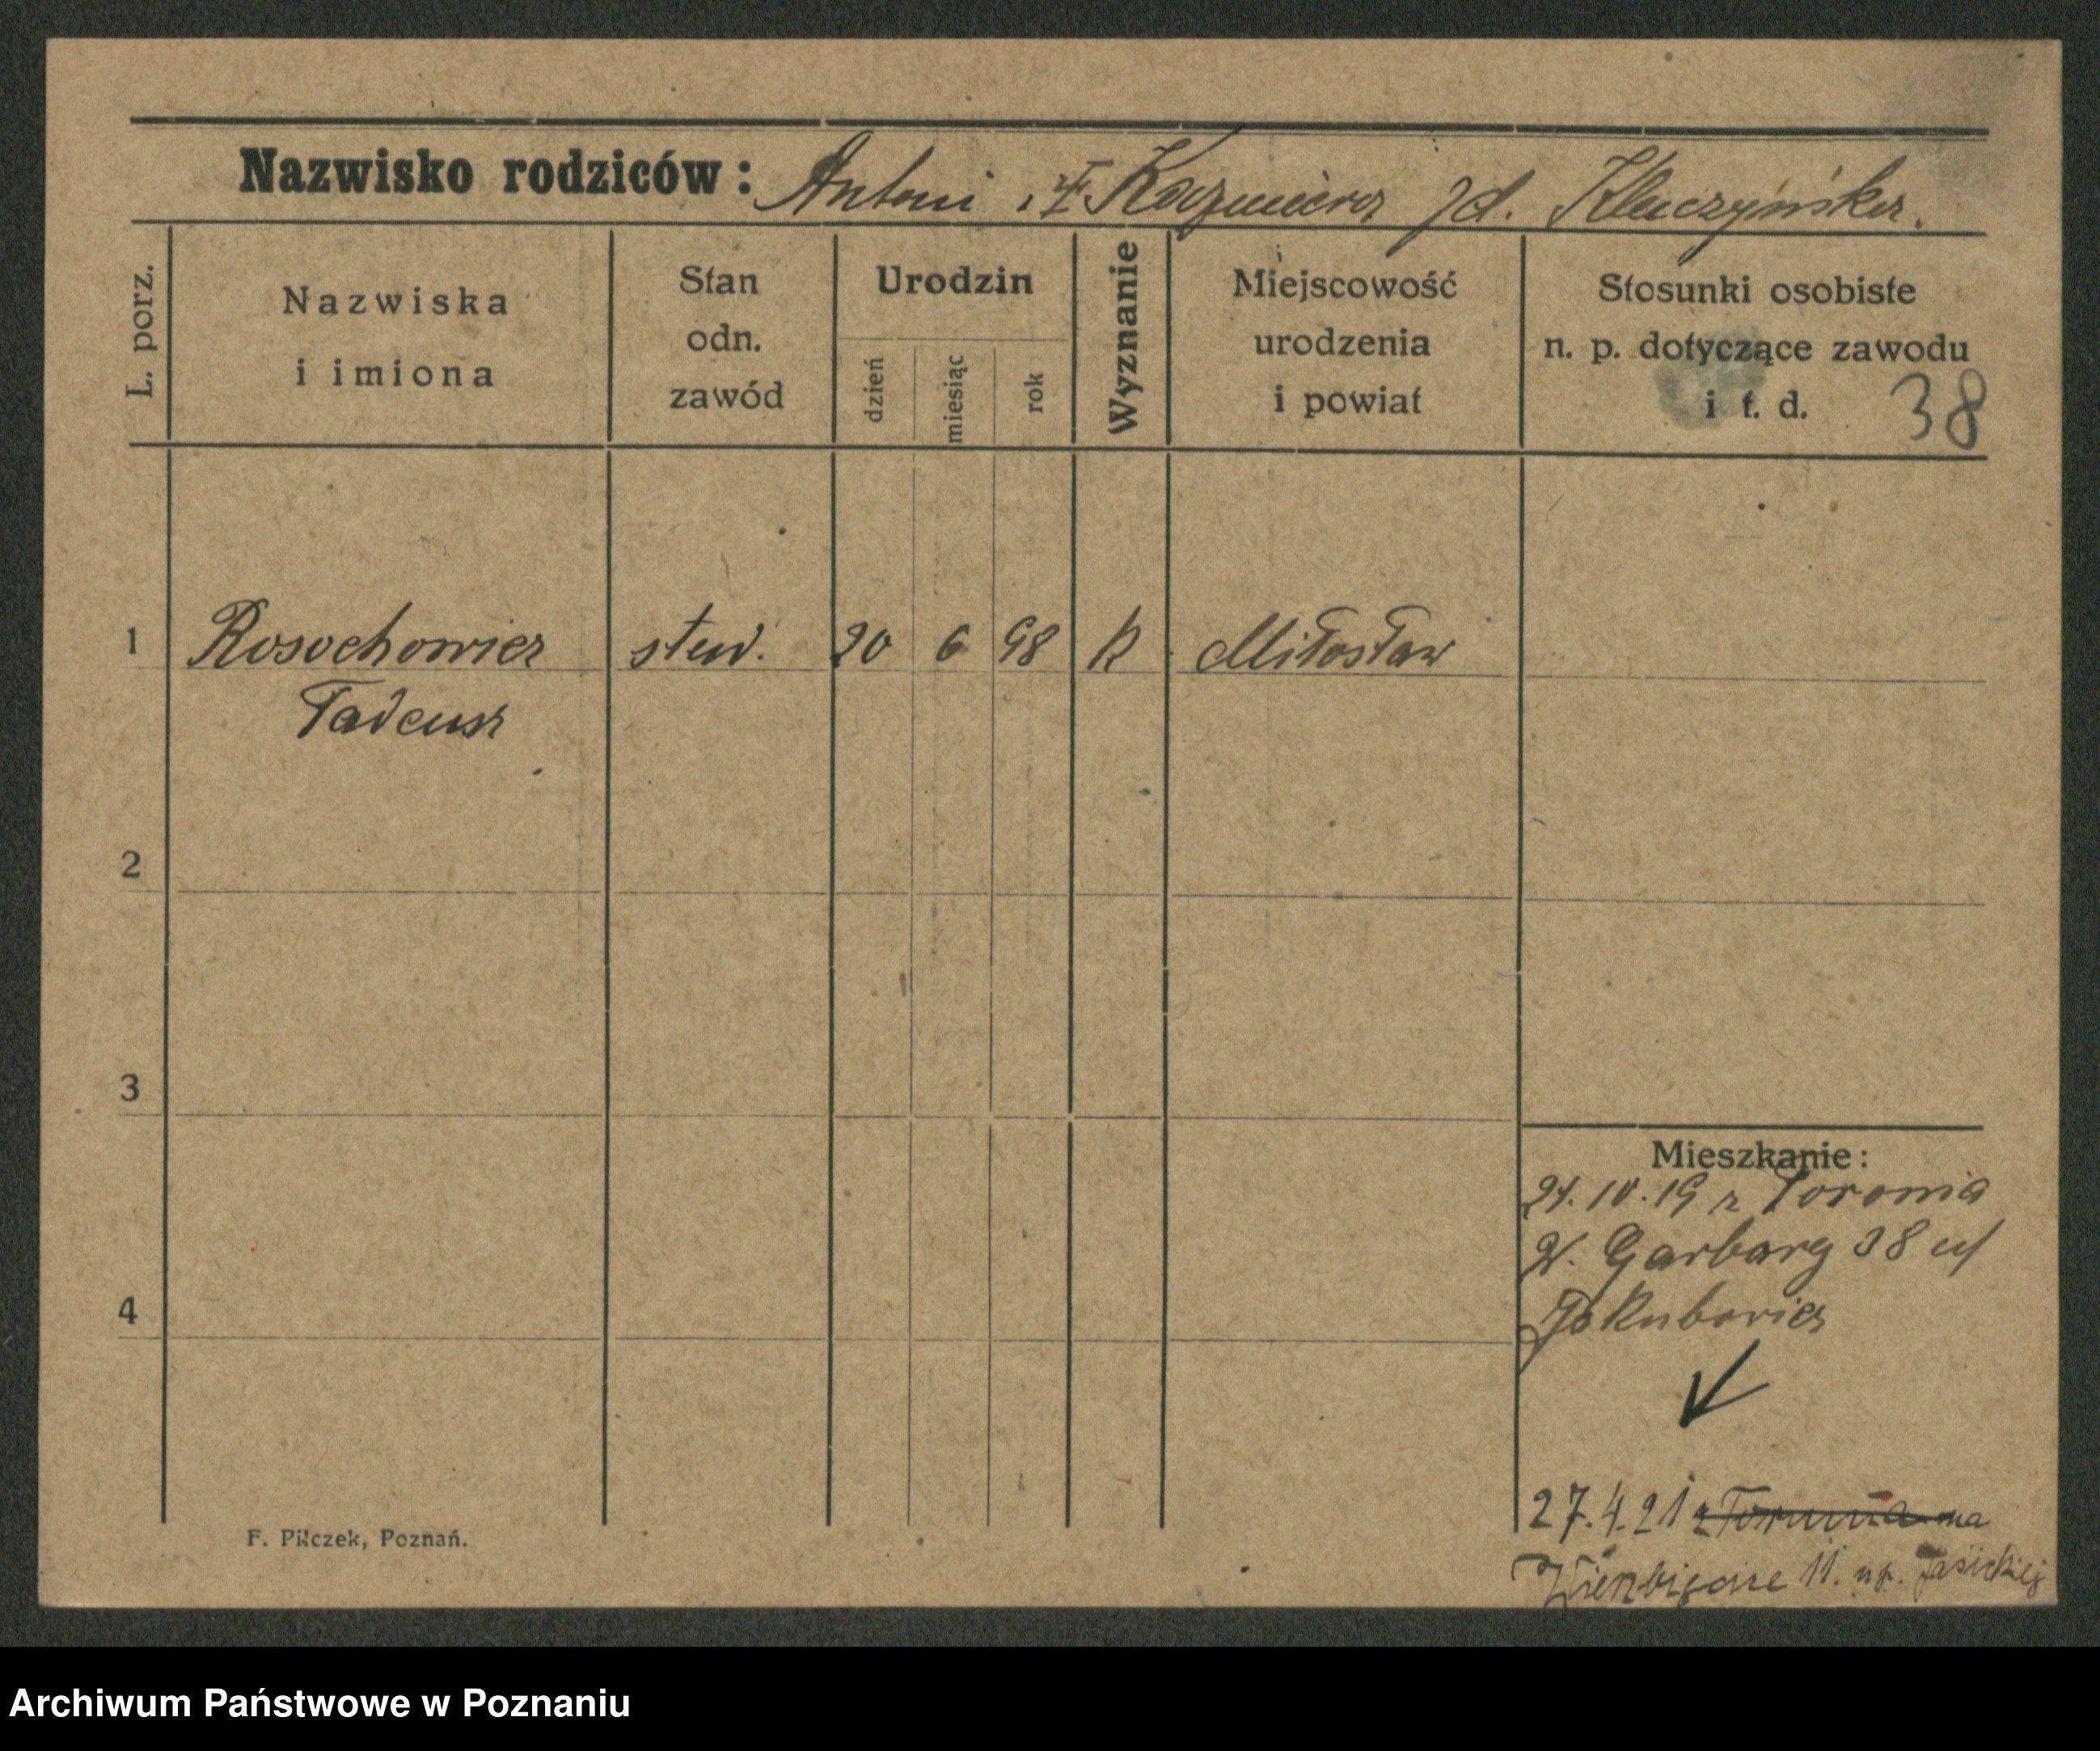 Nazwisko rodziców: Antoni i Kazimiera zd. Kluczyńska.
L. porz.
Nazwiska
i imiona
Stan
odn.
zawód
Urodzin
dzień
miesiąc
rok
Wyznanie
Miejscowość
urodzenia
i powiat
Stosunki osobiste
n. p. dotyczące zawodu
i t. d. 38
1 Rosochowicz stud. 20 6 98 K Miłosław
Tadeusz
2
3
Mieszkanie:
10.19 z Torunia
Garbary 38 u/
4 Jakubowicz
27.4.21 z Torunia na
Wierzbięcice 11. Jasickiej
F. Pilczek, Poznań.
Archiwum Państwowe w Poznaniu